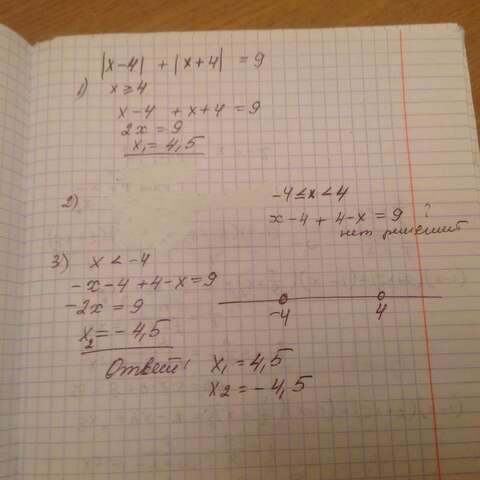 |x-4| + |x+4| = 9
1) x ≥ 4
x-4 + x+4 = 9
2x = 9
x₁ = 4,5
2) -4 ≤ x < 4
x-4 + 4-x = 9 ?
нет решений
3) x < -4
-x-4+4-x=9
-2x = 9
x₂ = -4,5
-4 4
Ответ: x₁ = 4,5
x2 = -4,5